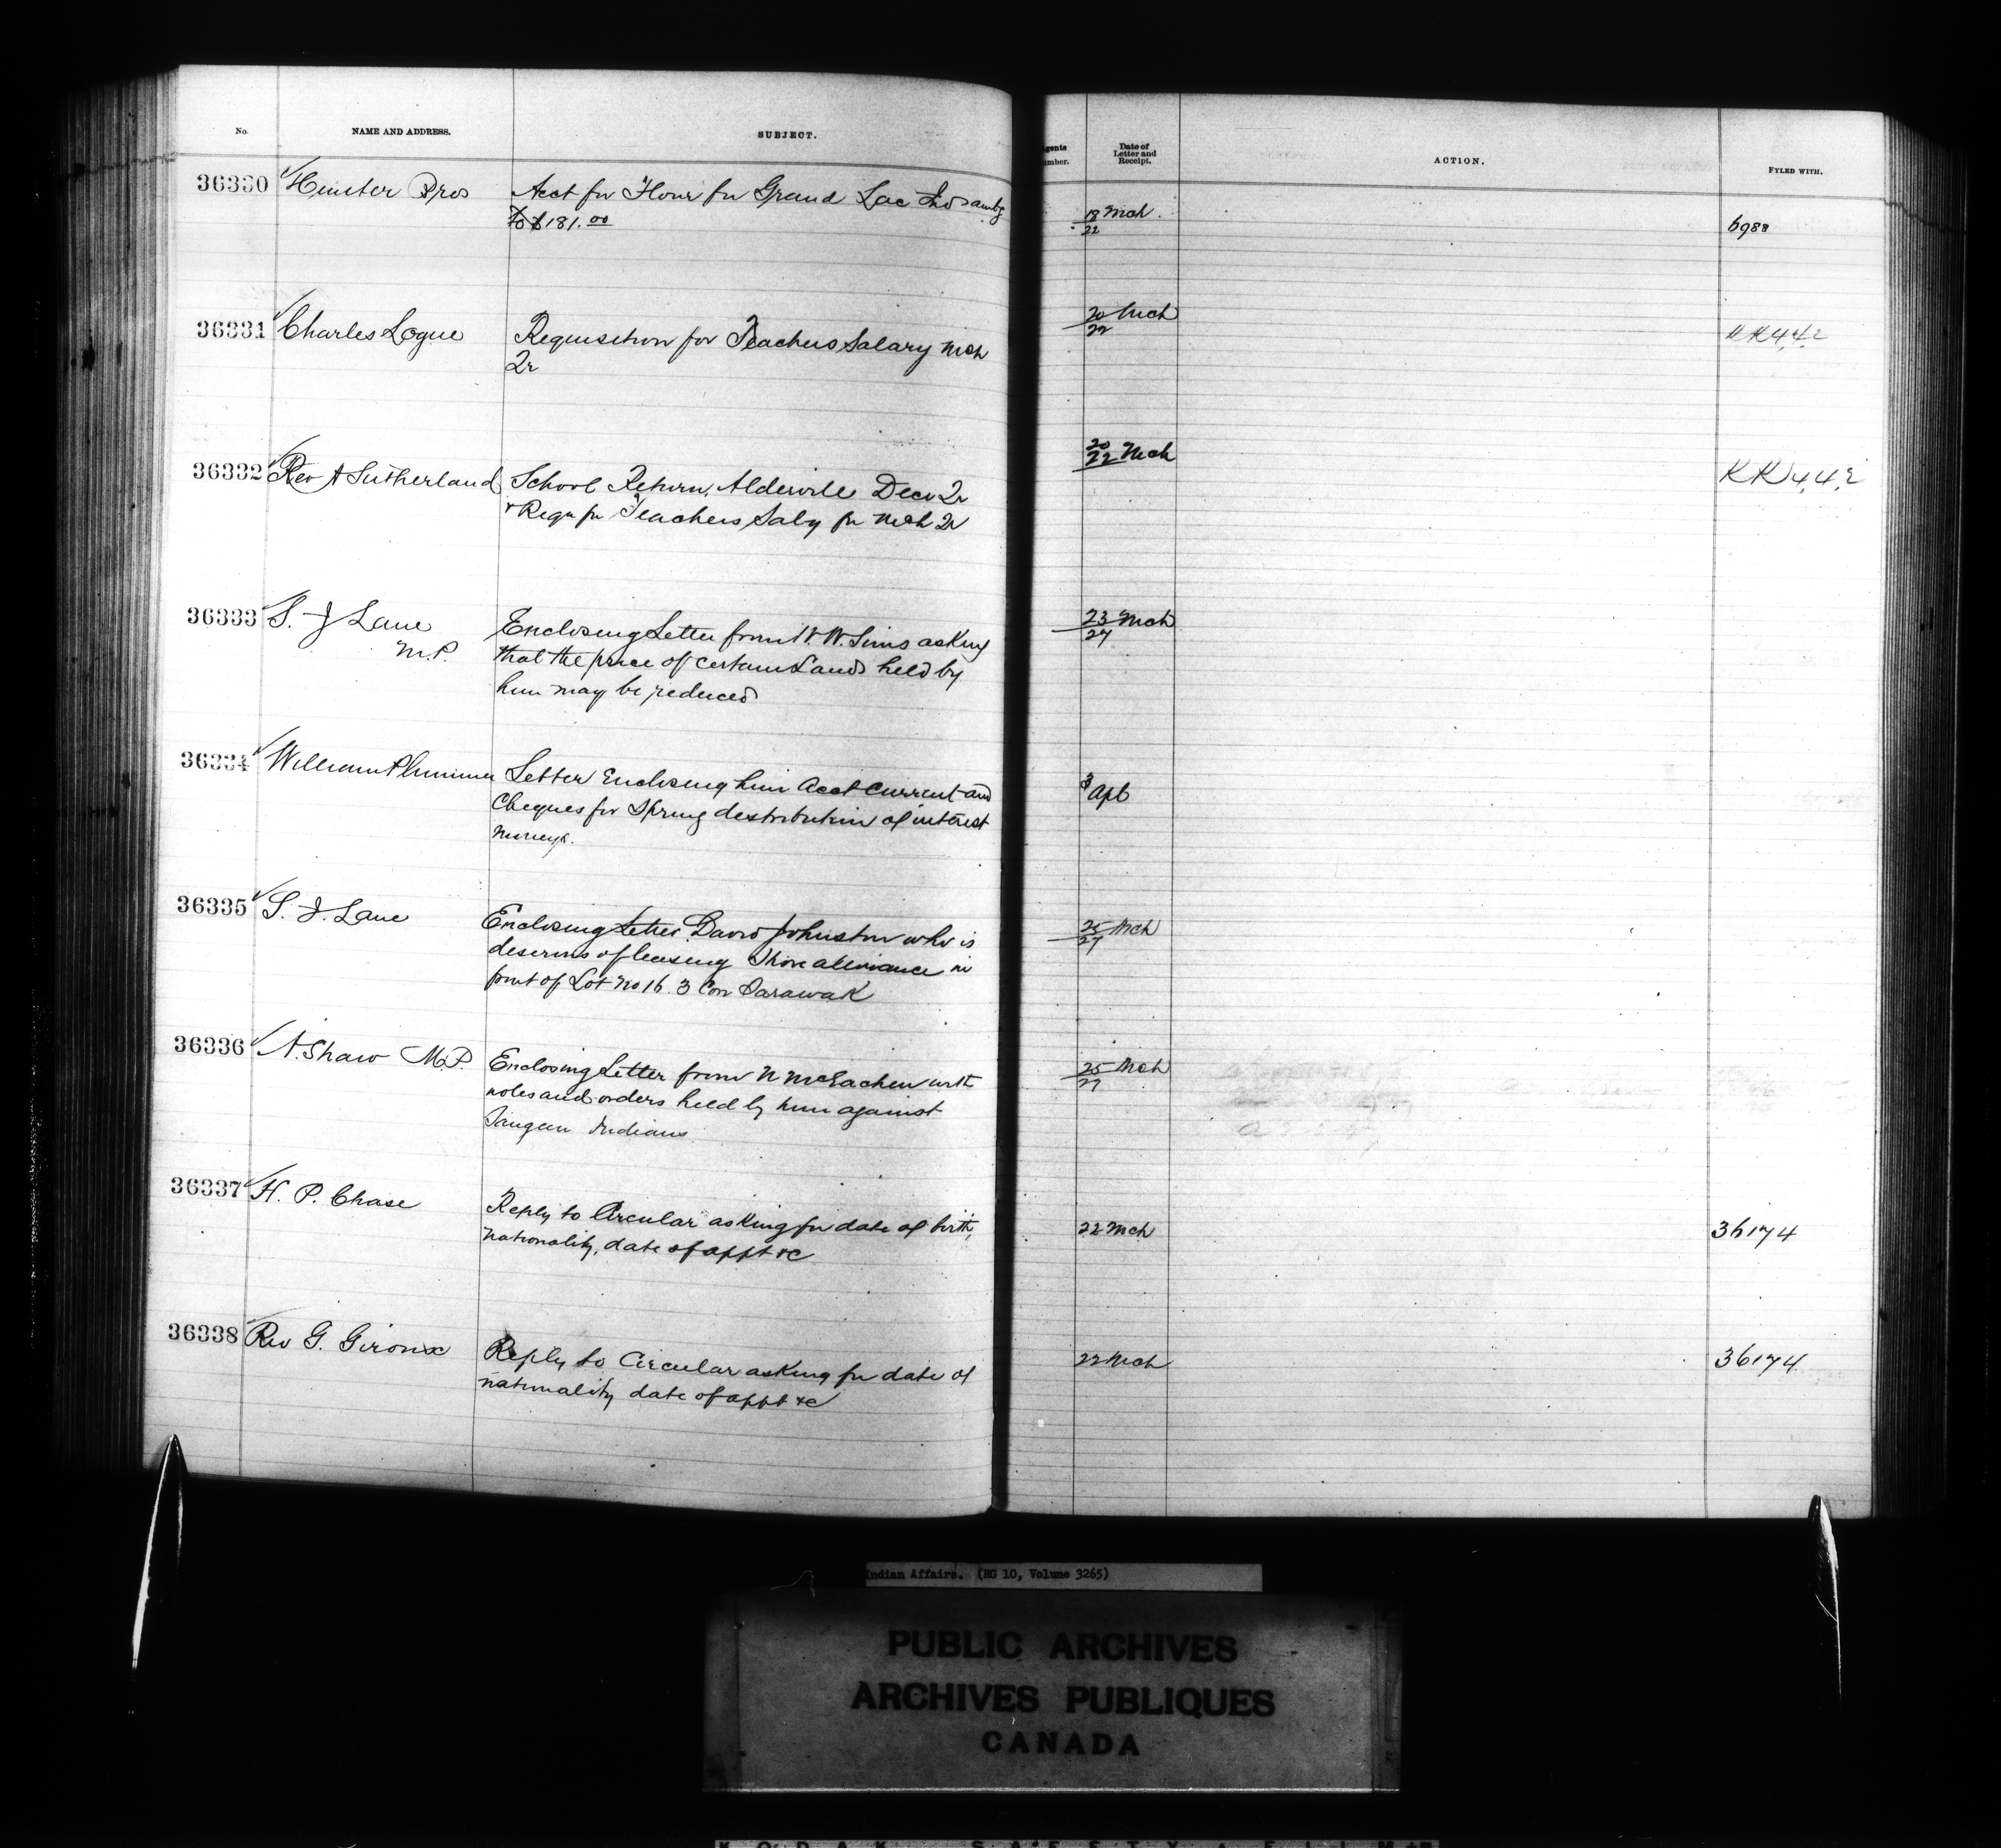 No.
NAME AND ADDRESS.
SUBJECT.
Agents Number.
Date of Letter and Receipt.
ACTION.
FYLED WITH.
36330 Hunter Bros
Acct for Flour for Grand Lac Inds amtg
to $181.00
18/22 Mch
6988
36331 Charles Logue
Requisition for Teachers Salary Mch
Qr
20/22 Mch
KK442
36332 Rev A Sutherland
School Return, Alderville Decr Qr
+ Reqn for Teachers Saly for Mch Qr
20/22 Mch
KK442
36333 S. J Lane
M.P.
Enclosing Letter from W. W. Sims asking
that the price of certain Lands held by
him may be reduced
23/27 Mch
36334 William Plummer
Letter Enclosing him Acct Current and
Cheques for Spring distribution of interest
moneys.
3 Apl
36335 S. J. Lane
Enclosing Letter David Johnston who is
desirous of leasing Shore allowance in
front of Lot No 16. 3 Con Sarawak
25/27 Mch
36336 A. Shaw M.P.
Enclosing Letter from N McEachen with
notes and orders held by him against
Saugeen Indians
25/27 Mch
36337 H. P. Chase
Reply to Circular asking for date of birth,
nationality, date of appt &c
22 Mch
36174
36338 Rev G. Giroux
Reply to Circular asking for date of
nationality date of appt &c
22 Mch
36174
Indian Affairs. (RG 10, Volume 3265)
PUBLIC ARCHIVES
ARCHIVES PUBLIQUES
CANADA